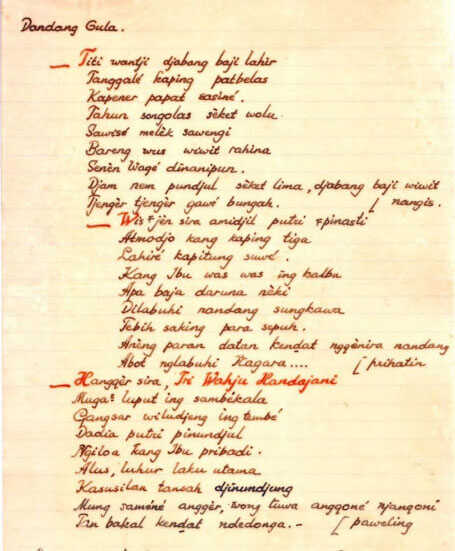 Dandang Gula.
Titi wantji djabang baji lahir
Tanggalé kaping patbelas
Kapener papat sasiné.
Tahun songolas sèket wolu.
Sawisé melèk sawengi
Bareng wus wiwit rahina
Senèn Wagé dinanipun.
Djam nem pundjul sèket lima, djabang baji wiwit
Tjengèr tjengèr gawé bungah. [ nangis.
Wis jèn sira amidjil putri pinasti
Atmodjo kang kaping tiga
Lahiré kapitung suwé.
Kang Ibu was was ing kalbu
Apa baja daruna nèki
Dilabuhi nandang sungkawa
Tebih saking para sepuh.
Anèng paran datan kendat nggènira nandang
Abot nglabuhi Nagara.... [ prihatin
Hanggèr sira, Tri Wahju Handajani
Muga² luput ing sambékala
Gangsar wiludjeng ing tembé
Dadia putri pinundjul
Ngiloa kang Ibu pribadi.
Alus, luhur laku utama
Kasusilan tansah djinundjung
Mung saméné anggèr, wong tuwa anggoné njangoni
Tan bakal kendat ndedonga.- [ paweling